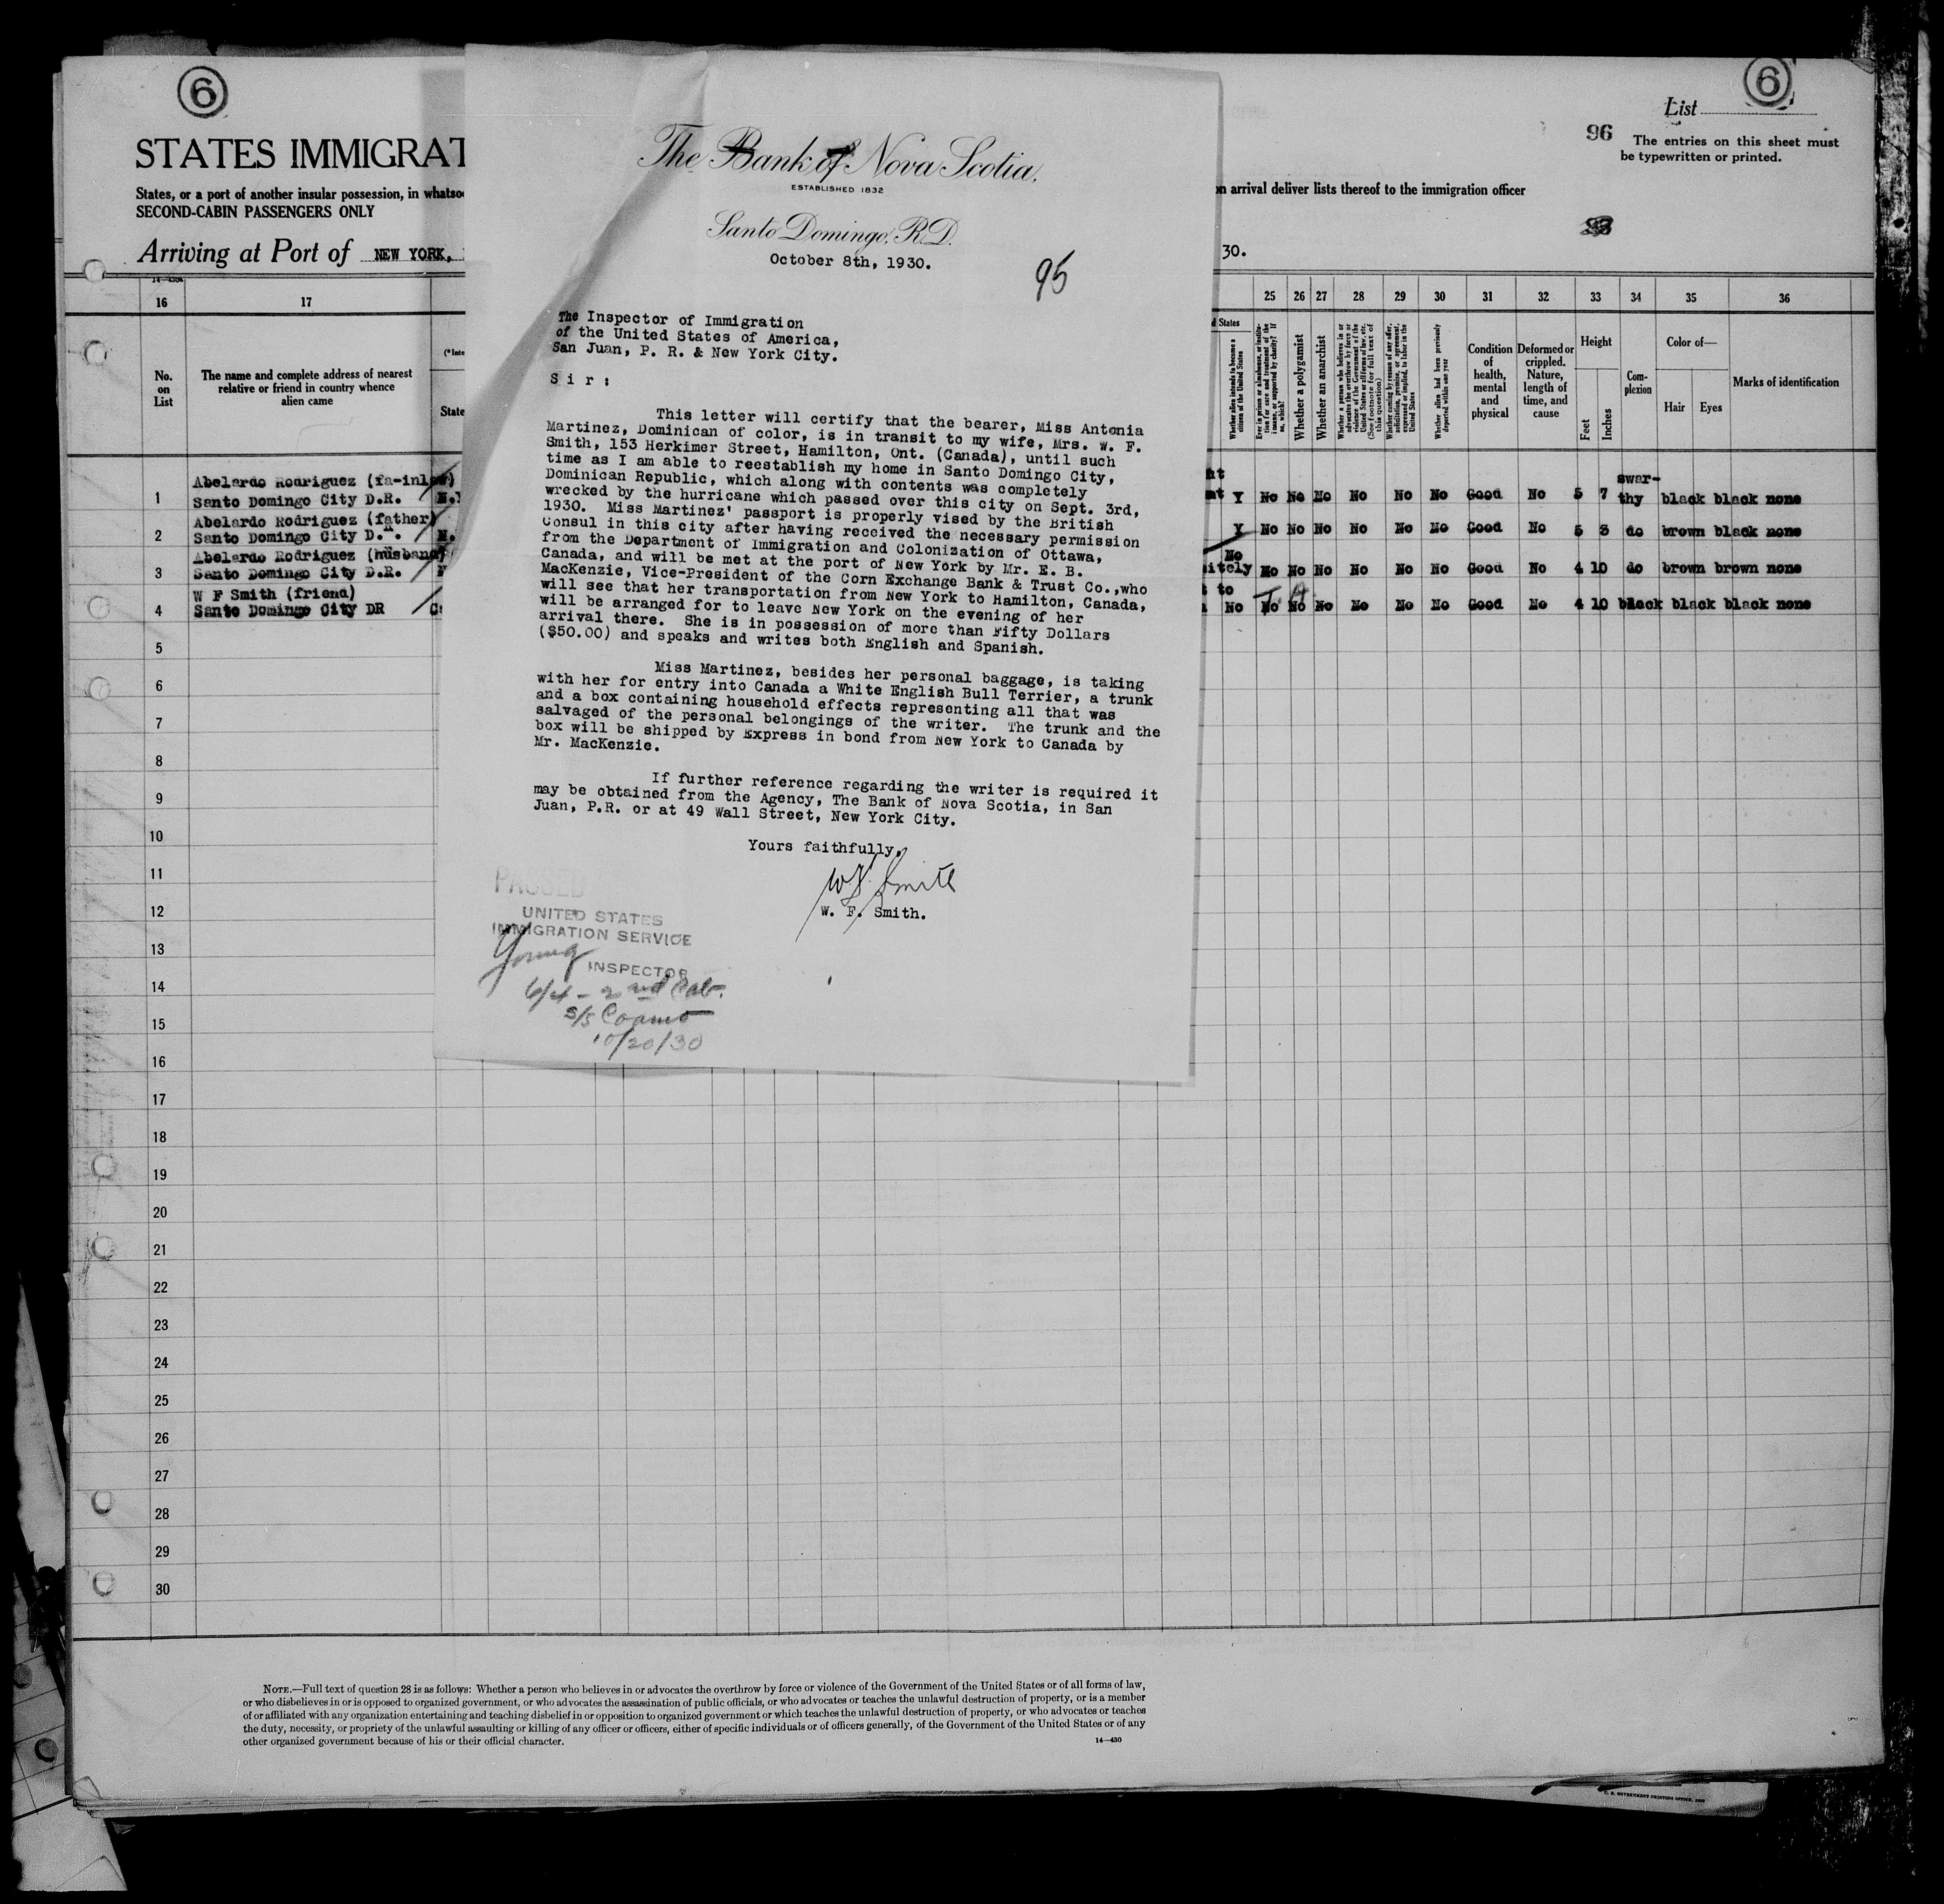 6
6
List
96
The entries on this sheet must
be typewritten or printed.
STATES IMMIGRAT
States, or a port of another insular possession, in whatso
on arrival deliver lists thereof to the immigration officer
SECOND-CABIN PASSENGERS ONLY
Arriving at Port of NEW YORK,
30.
The Bank of Nova Scotia.
ESTABLISHED 1832
Santo Domingo, R.D.
October 8th, 1930.
95
The Inspector of Immigration
of the United States of America,
San Juan, P. R. & New York City.
S i r :
This letter will certify that the bearer, Miss Antonia
Martinez, Dominican of color, is in transit to my wife, Mrs. W. F.
Smith, 153 Herkimer Street, Hamilton, Ont. (Canada), until such
time as I am able to reestablish my home in Santo Domingo City,
Dominican Republic, which along with contents was completely
wrecked by the hurricane which passed over this city on Sept. 3rd,
1930. Miss Martinez' passport is properly vised by the British
Consul in this city after having received the necessary permission
from the Department of Immigration and Colonization of Ottawa,
Canada, and will be met at the port of New York by Mr. E. B.
MacKenzie, Vice-President of the Corn Exchange Bank & Trust Co.,who
will see that her transportation from New York to Hamilton, Canada,
will be arranged for to leave New York on the evening of her
arrival there. She is in possession of more than Fifty Dollars
($50.00) and speaks and writes both English and Spanish.
Miss Martinez, besides her personal baggage, is taking
with her for entry into Canada a White English Bull Terrier, a trunk
and a box containing household effects representing all that was
salvaged of the personal belongings of the writer. The trunk and the
box will be shipped by Express in bond from New York to Canada by
Mr. MacKenzie.
If further reference regarding the writer is required it
may be obtained from the Agency, The Bank of Nova Scotia, in San
Juan, P.R. or at 49 Wall Street, New York City.
Yours faithfully,
W F Smith
W. F. Smith.
PASSED
UNITED STATES
IMMIGRATION SERVICE
Young
INSPECTOR
6/4 - 2nd Cab.
S/S Coamo
10/20/30
14-430a
16 17
25 26 27 28 29 30 31 32 33 34 35 36
No.
on
List
The name and complete address of nearest
relative or friend in country whence
alien came
State
d States
Whether alien intends to become a
citizen of the United States
Ever in prison or almshouse, or institu-
tion for care and treatment of the
insane, or supported by charity? If
so, which?
Whether a polygamist
Whether an anarchist
Whether a person who believes in or
advocates the overthrow by force or
violence of the Government of the
United States or all forms of law, etc.
(See footnote for full text of
this question)
Whether coming by reason of any offer,
solicitation, promise, or agreement,
expressed or implied, to labor in the
United States
Whether alien had been previously
deported within one year
Condition
of
health,
mental
and
physical
Deformed or
crippled.
Nature,
length of
time, and
cause
Height
Feet
Inches
Com-
plexion
Color of—
Hair Eyes
Marks of identification
1 Abelardo Rodriguez (fa-inlaw)
Santo Domingo City D.R.
swar-
Y No No No No No No Good No 5 7 thy black black none
2 Abelardo Rodriguez (father)
Santo Domingo City D.R.
Y No No No No No No Good No 5 3 do brown black none
3 Abelardo Rodriguez (husband)
Santo Domingo City D.R.
No
itely No No No No No No Good No 4 10 do brown brown none
4 W F Smith (friend)
Santo Domingo City DR
to
No No No No No No No Good No 4 10 black black black none
5
6
7
8
9
10
11
12
13
14
15
16
17
18
19
20
21
22
23
24
25
26
27
28
29
30
NOTE.—Full text of question 28 is as follows: Whether a person who believes in or advocates the overthrow by force or violence of the Government of the United States or of all forms of law,
or who disbelieves in or is opposed to organized government, or who advocates the assassination of public officials, or who advocates or teaches the unlawful destruction of property, or is a member
of or affiliated with any organization entertaining and teaching disbelief in or opposition to organized government or which teaches the unlawful destruction of property, or who advocates or teaches
the duty, necessity, or propriety of the unlawful assaulting or killing of any officer or officers, either of specific individuals or of officers generally, of the Government of the United States or of any
other organized government because of his or their official character.
14—430
U. S. GOVERNMENT PRINTING OFFICE